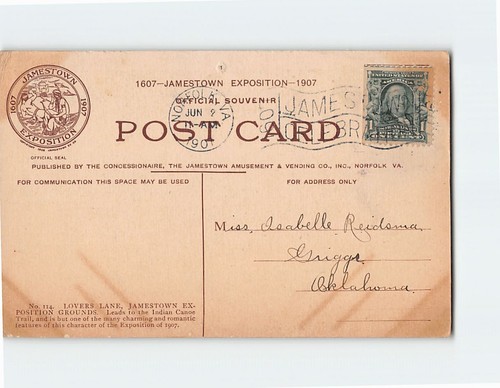 JAMESTOWN
1607 1907
EXPOSITION
OFFICIAL SEAL
1607—JAMESTOWN EXPOSITION—1907
OFFICIAL SOUVENIR
POST CARD
NORFOLK, VA.
JUN
11-AM
1907
JAMES
PUBLISHED BY THE CONCESSIONAIRE, THE JAMESTOWN AMUSEMENT & VENDING CO., INC., NORFOLK VA.
FOR COMMUNICATION THIS SPACE MAY BE USED
FOR ADDRESS ONLY
Miss, Asabelle Reidsma,
Griggs,
Oklahoma.
No. 114. LOVERS LANE, JAMESTOWN EX-
POSITION GROUNDS. Leads to the Indian Canoe
Trail, and is but one of the many charming and romantic
features of this character of the Exposition of 1907.